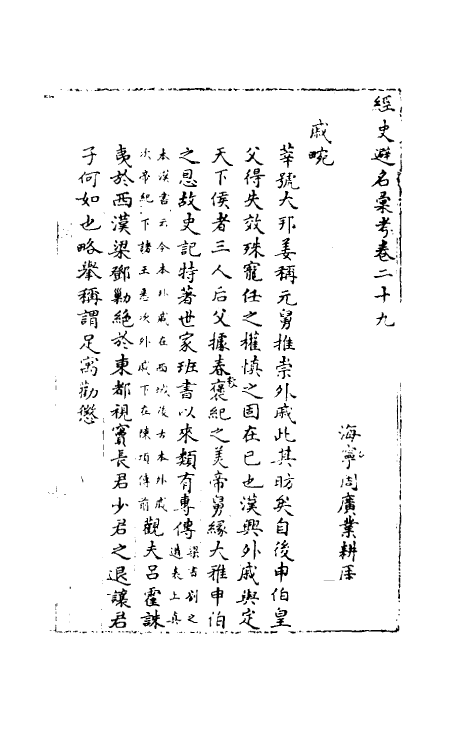 經史避名彙考卷二十九
海寧周廣業耕厓
戚畹
莘號大邦姜稱元舅推崇外戚此其昉矣自後申伯皇
父得失效殊寵任之權慎之固在已也漢興外戚與定
天下侯者三人后父據春秋褒紀之美帝舅緣大雅申伯
之恩故史記特著世家班書以來類有專傳梁書劉之遴表上真
本漢書云今本外戚在西域後古本外戚次帝紀下諸王悉次外戚下在陳項傳前觀夫呂霍誅
夷於西漢梁鄧勦絕於東都視竇長君少君之退讓君
子何如也略舉稱謂足寓勸懲